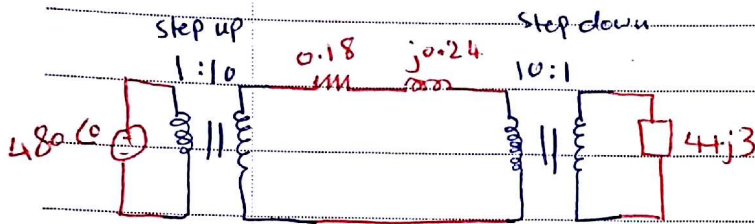 step up step down
1:10 0.18 j0.24 10:1
480∠0 4+j3